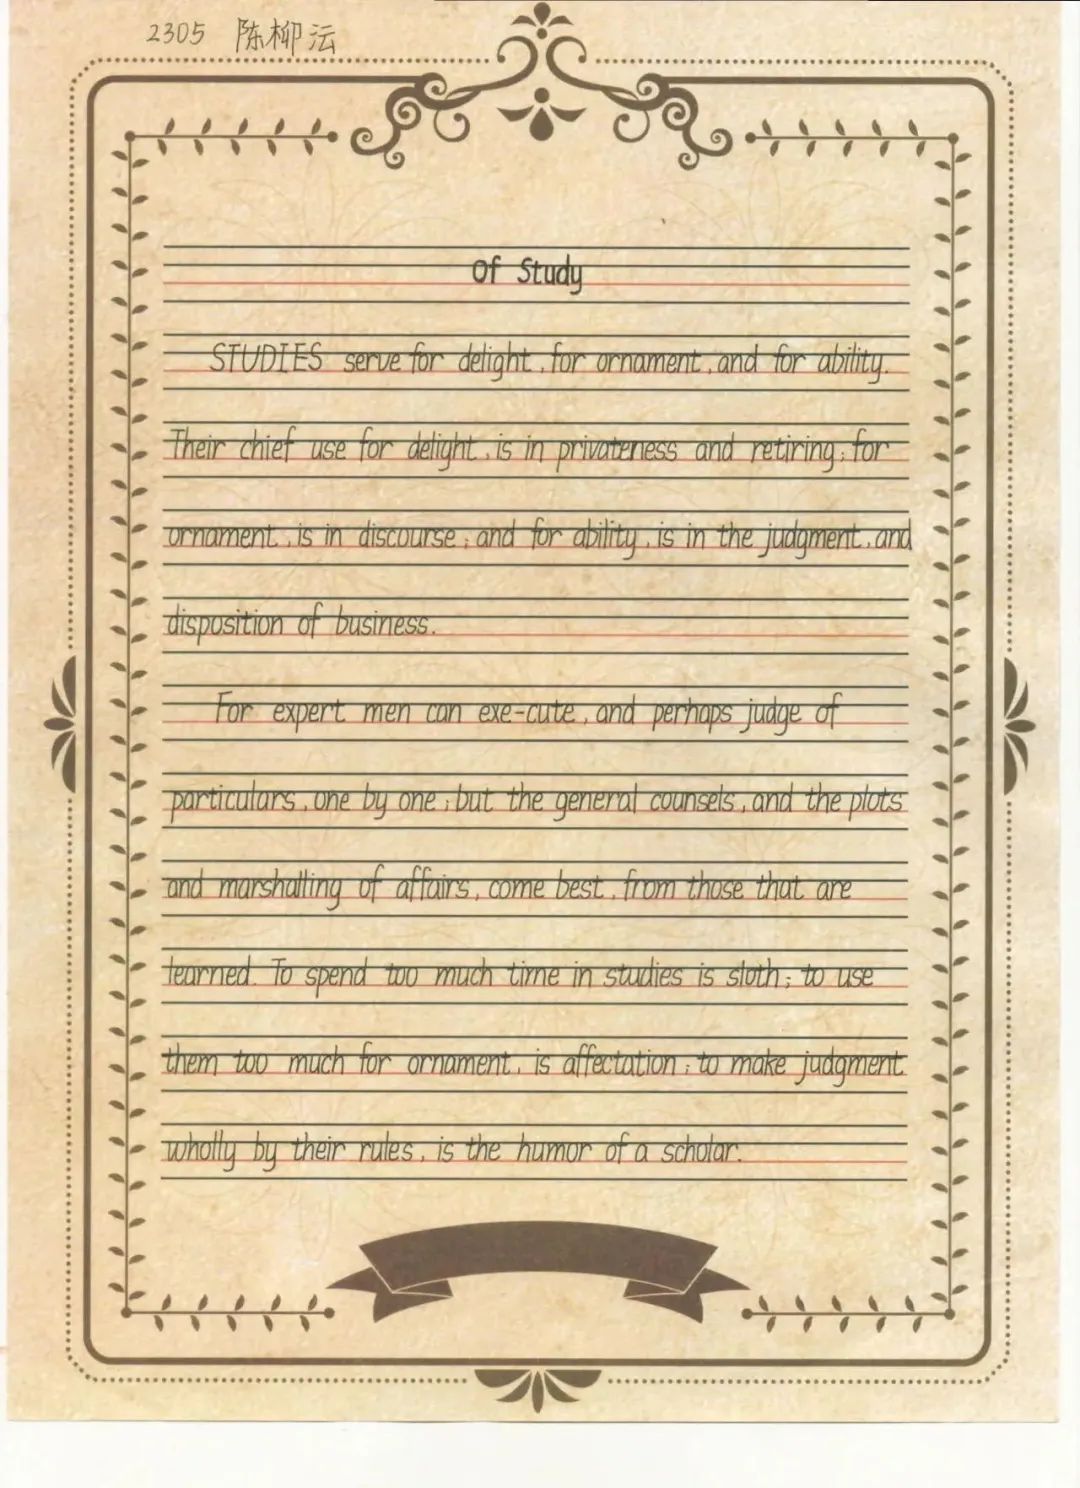 2305 陈柳沄
Of Study
STUDIES serve for delight, for ornament, and for ability.
Their chief use for delight, is in privateness and retiring; for
ornament, is in discourse; and for ability, is in the judgment, and
disposition of business.
For expert men can exe-cute, and perhaps judge of
particulars, one by one; but the general counsels, and the plots
and marshalling of affairs, come best, from those that are
learned. To spend too much time in studies is sloth; to use
them too much for ornament, is affectation; to make judgment
wholly by their rules, is the humor of a scholar.